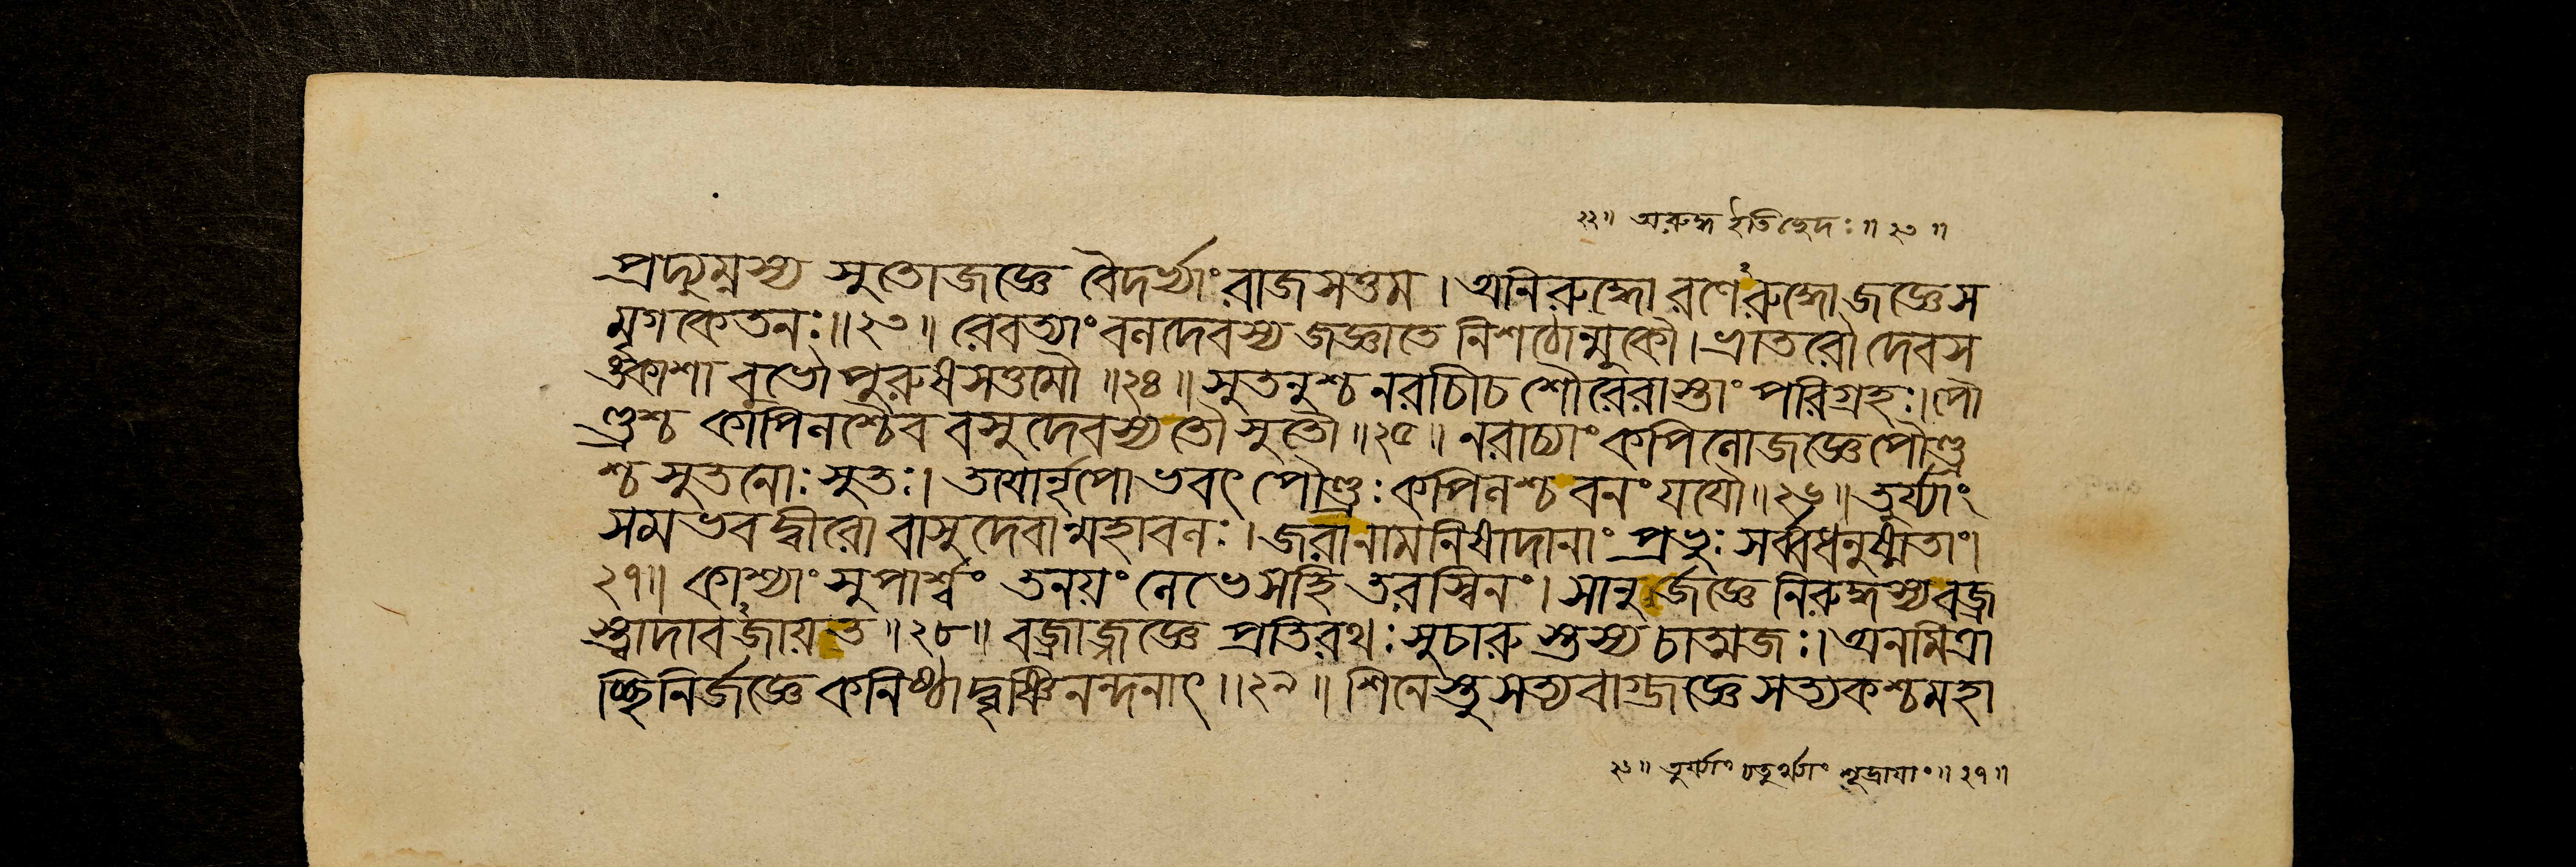 ২২॥ অরুদ্ধ ইতিছেদঃ॥ ২৩ ॥
প্রদ্যুম্নস্য সুতোজজ্ঞে বৈদর্ভ্যাং রাজসত্তম। অনিরুদ্ধো রণেঽরুদ্ধোজজ্ঞেস
মৃগকেতনঃ॥২৩॥ রেবত্যাং বলদেবস্য জজ্ঞাতে নিশঠোল্মুকৌ। ভ্রাতরৌ দেবস
ঙ্কাশা বুভৌ পুরুষসত্তমৌ ॥২৪॥ সুতনুশ্চ নরাচীচ শৌরেরাস্তাং পরিগ্রহঃ। পৌ
ণ্ড্রশ্চ কপিলশ্চৈব বসুদেবস্য তৌ সুতৌ॥২৫॥ নরাচ্যাং কপিলোজজ্ঞে পৌণ্ড্র
শ্চ সুতনোঃ সুতঃ। তয়োর্নৃপোভবৎ পৌণ্ড্রঃ কপিলশ্চ বনং যযৌ॥২৬॥ তুর্য্যাং
সমভবদ্বীরো বাসুদেবান্মহাবলঃ। জরানামনিষাদানাং প্রভুঃ সর্ব্বধনুষ্মতাং।
২৭॥ কাশ্যাং সুপার্শ্বং তনয়ং লেভেসাম্বি তরস্বিনং। সানুর্জজ্ঞে নিরুদ্ধস্য বজ্র
স্ত্বাদাবজায়ত॥২৮॥ বজ্রাজ্জজ্ঞে প্রতিরথঃ সুচারুস্তস্য চাত্মজঃ। অনমিত্রা
চ্ছিনির্জজ্ঞে কনিষ্ঠাদ্বৃষ্ণিনন্দনাৎ॥২৯॥ শিনেস্তু সত্যবাগ্জজ্ঞে সত্যকশ্চ মহা
২৬॥ তুর্য্যাং চতুর্থ্যাং শূদ্রায়াং॥ ২৭॥